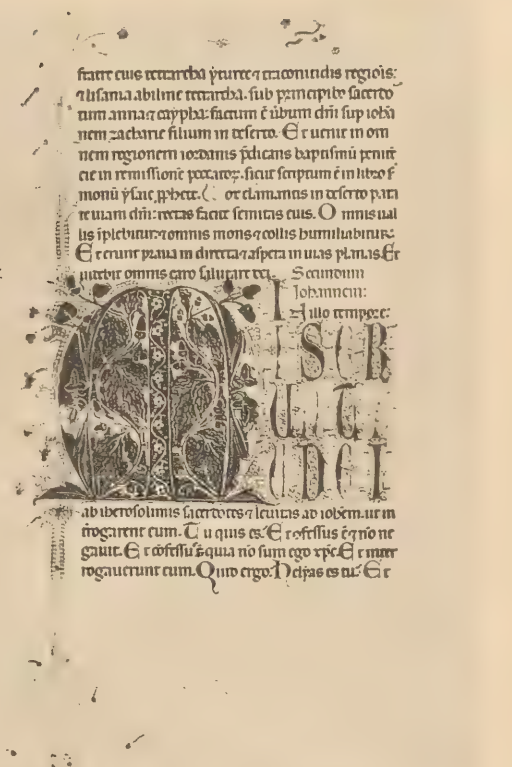 fratre eius tetrarcha yturee ⁊ traconitidis regiois:
⁊ lisania abiline tetrarcha. sub principibꝰ sacerdo
tum anna ⁊ caypha: factum ē ūbum dnī sup iohā
nem zacharie filium in deserto. Et uenit in om
nem regionem iordanis p̄dicans baptismū penitē
cie in remissionē peccatoꝝ. sicut scriptum ē in libro s̄
monū ysaie ꝓphete. ox clamantis in deserto para
te uiam dnī: rectas facite semitas eius. Omnis ual
lis īplebitur: ⁊ omnis mons ⁊ collis humiliabitur.
Et erunt praua in directa ⁊ aspera in uias planas. Et
uidebit omnis caro salutare dei. Secundum
Iohannem:
In illo tempore:
M ISER
UNT
IUDEI
ab iherosolimis sacerdotes ⁊ leuitas ad iohem. ut in
trogarent eum. Tu quis es. Et ɔfessus ē ⁊ nō ne
gauit. Et cōfessus ē quia nō sum ego xpc. Et inter
rogauerunt eum. Quid ergo. helyas es tu. Et